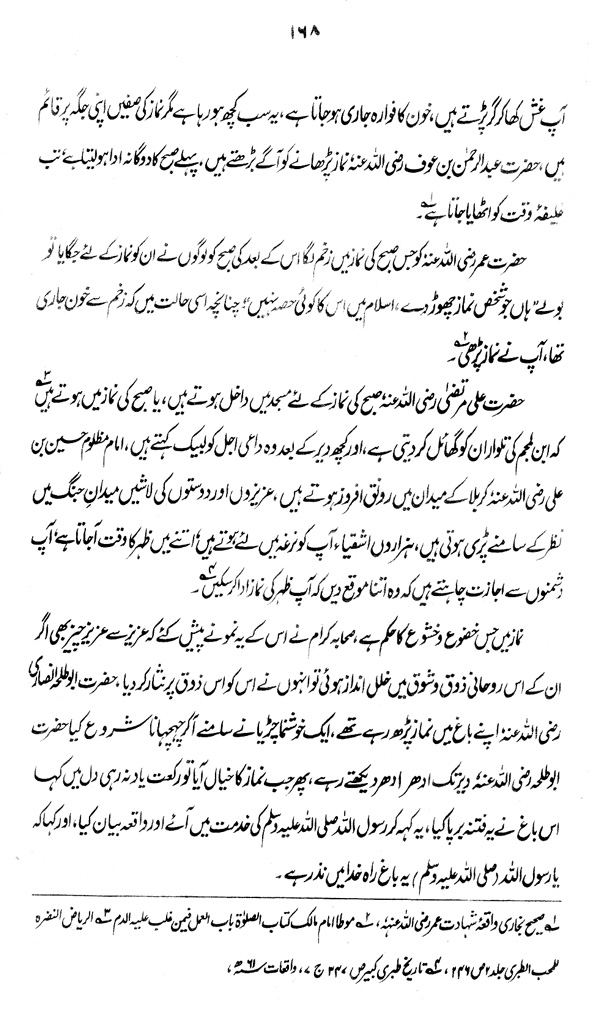 ۱۶۸
آپ غش کھا کر گر پڑتے ہیں، خون کا فوارہ جاری ہو جاتا ہے، یہ سب کچھ ہو رہا ہے مگر نماز کی صفیں اپنی جگہ پر قائم
ہیں، حضرت عبدالرحمٰن بن عوف رضی اللہ عنہٗ نماز پڑھانے کو آگے بڑھتے ہیں، پہلے صبح کا دوگانہ ادا ہو لیتا ہے تب
خلیفۂ وقت کو اٹھایا جاتا ہے۱؎۔
حضرت عمر رضی اللہ عنہٗ کو جس صبح کی نماز میں زخم لگا اس کے بعد کی صبح کو لوگوں نے ان کو نماز کے لئے جگایا تو
بولے "ہاں جو شخص نماز چھوڑ دے، اسلام میں اس کا کوئی حصہ نہیں"، چنانچہ اسی حالت میں کہ زخم سے خون جاری
تھا، آپ نے نماز پڑھی۲؎۔
حضرت علی مرتضیٰ رضی اللہ عنہٗ صبح کی نماز کے لئے مسجد میں داخل ہوتے ہیں، یا صبح کی نماز میں ہوتے ہیں۳؎
کہ ابن ملجم کی تلوار ان کو گھائل کر دیتی ہے، اور کچھ دیر کے بعد وہ داعی اجل کو لبیک کہتے ہیں، امام مظلوم حسین بن
علی رضی اللہ عنہٗ کربلا کے میدان میں رونق افروز ہوتے ہیں، عزیزوں اور دوستوں کی لاشیں میدانِ جنگ میں
نظر کے سامنے پڑی ہوتی ہیں، ہزاروں اشقیاء آپ کو نرغہ میں لئے ہوتے ہیں، اتنے میں ظہر کا وقت آجاتا ہے، آپ
دشمنوں سے اجازت چاہتے ہیں کہ وہ اتنا موقع دیں کہ آپ ظہر کی نماز ادا کر سکیں۴؎۔
نماز میں جس خضوع و خشوع کا حکم ہے، صحابہ کرام نے اس کے یہ نمونے پیش کئے کہ عزیز سے عزیز چیز بھی اگر
ان کے اس روحانی ذوق و شوق میں خلل انداز ہوئی تو انہوں نے اس کو اس ذوق پر نثار کر دیا، حضرت ابو طلحہ انصاری
رضی اللہ عنہٗ اپنے باغ میں نماز پڑھ رہے تھے، ایک خوشنما چڑیا نے سامنے آکر چہچہانا شروع کیا حضرت
ابو طلحہ رضی اللہ عنہٗ دیر تک ادھر ادھر دیکھتے رہے، پھر جب نماز کا خیال آیا تو رکعت یاد نہ رہی دل میں کہا
اس باغ نے یہ فتنہ برپا کیا، یہ کہہ کر رسول اللہ صلی اللہ علیہ وسلم کی خدمت میں آئے اور واقعہ بیان کیا، اور کہا کہ
یا رسول اللہ (صلی اللہ علیہ وسلم) یہ باغ راہ خدا میں نذر ہے۔
۱؎ صحیح بخاری واقعۂ شہادت عمر رضی اللہ عنہٗ، ۲؎ موطا امام مالک کتاب الصلوٰۃ باب العمل فیمن غلب علیہ الدم ۳؎ الریاض النضرہ
للمحب الطبری جلد ۲ ص ۲۴۶، ۴؎ تاریخ طبری کبیر ص ۳۴۷ ج ۷، واقعات ۶۱ھ،